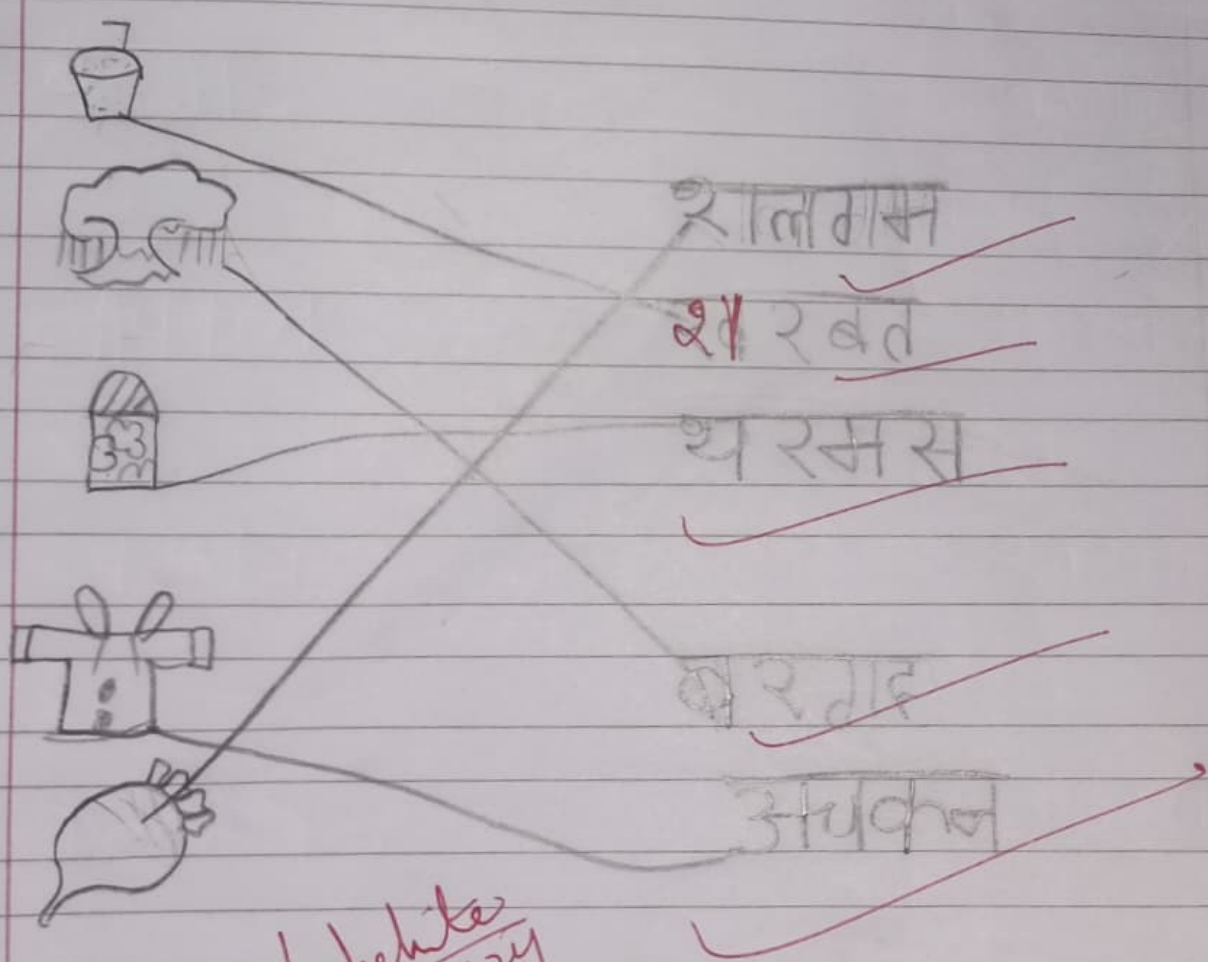 शलगम
शरबत
थरमस
बरगद
अचकन